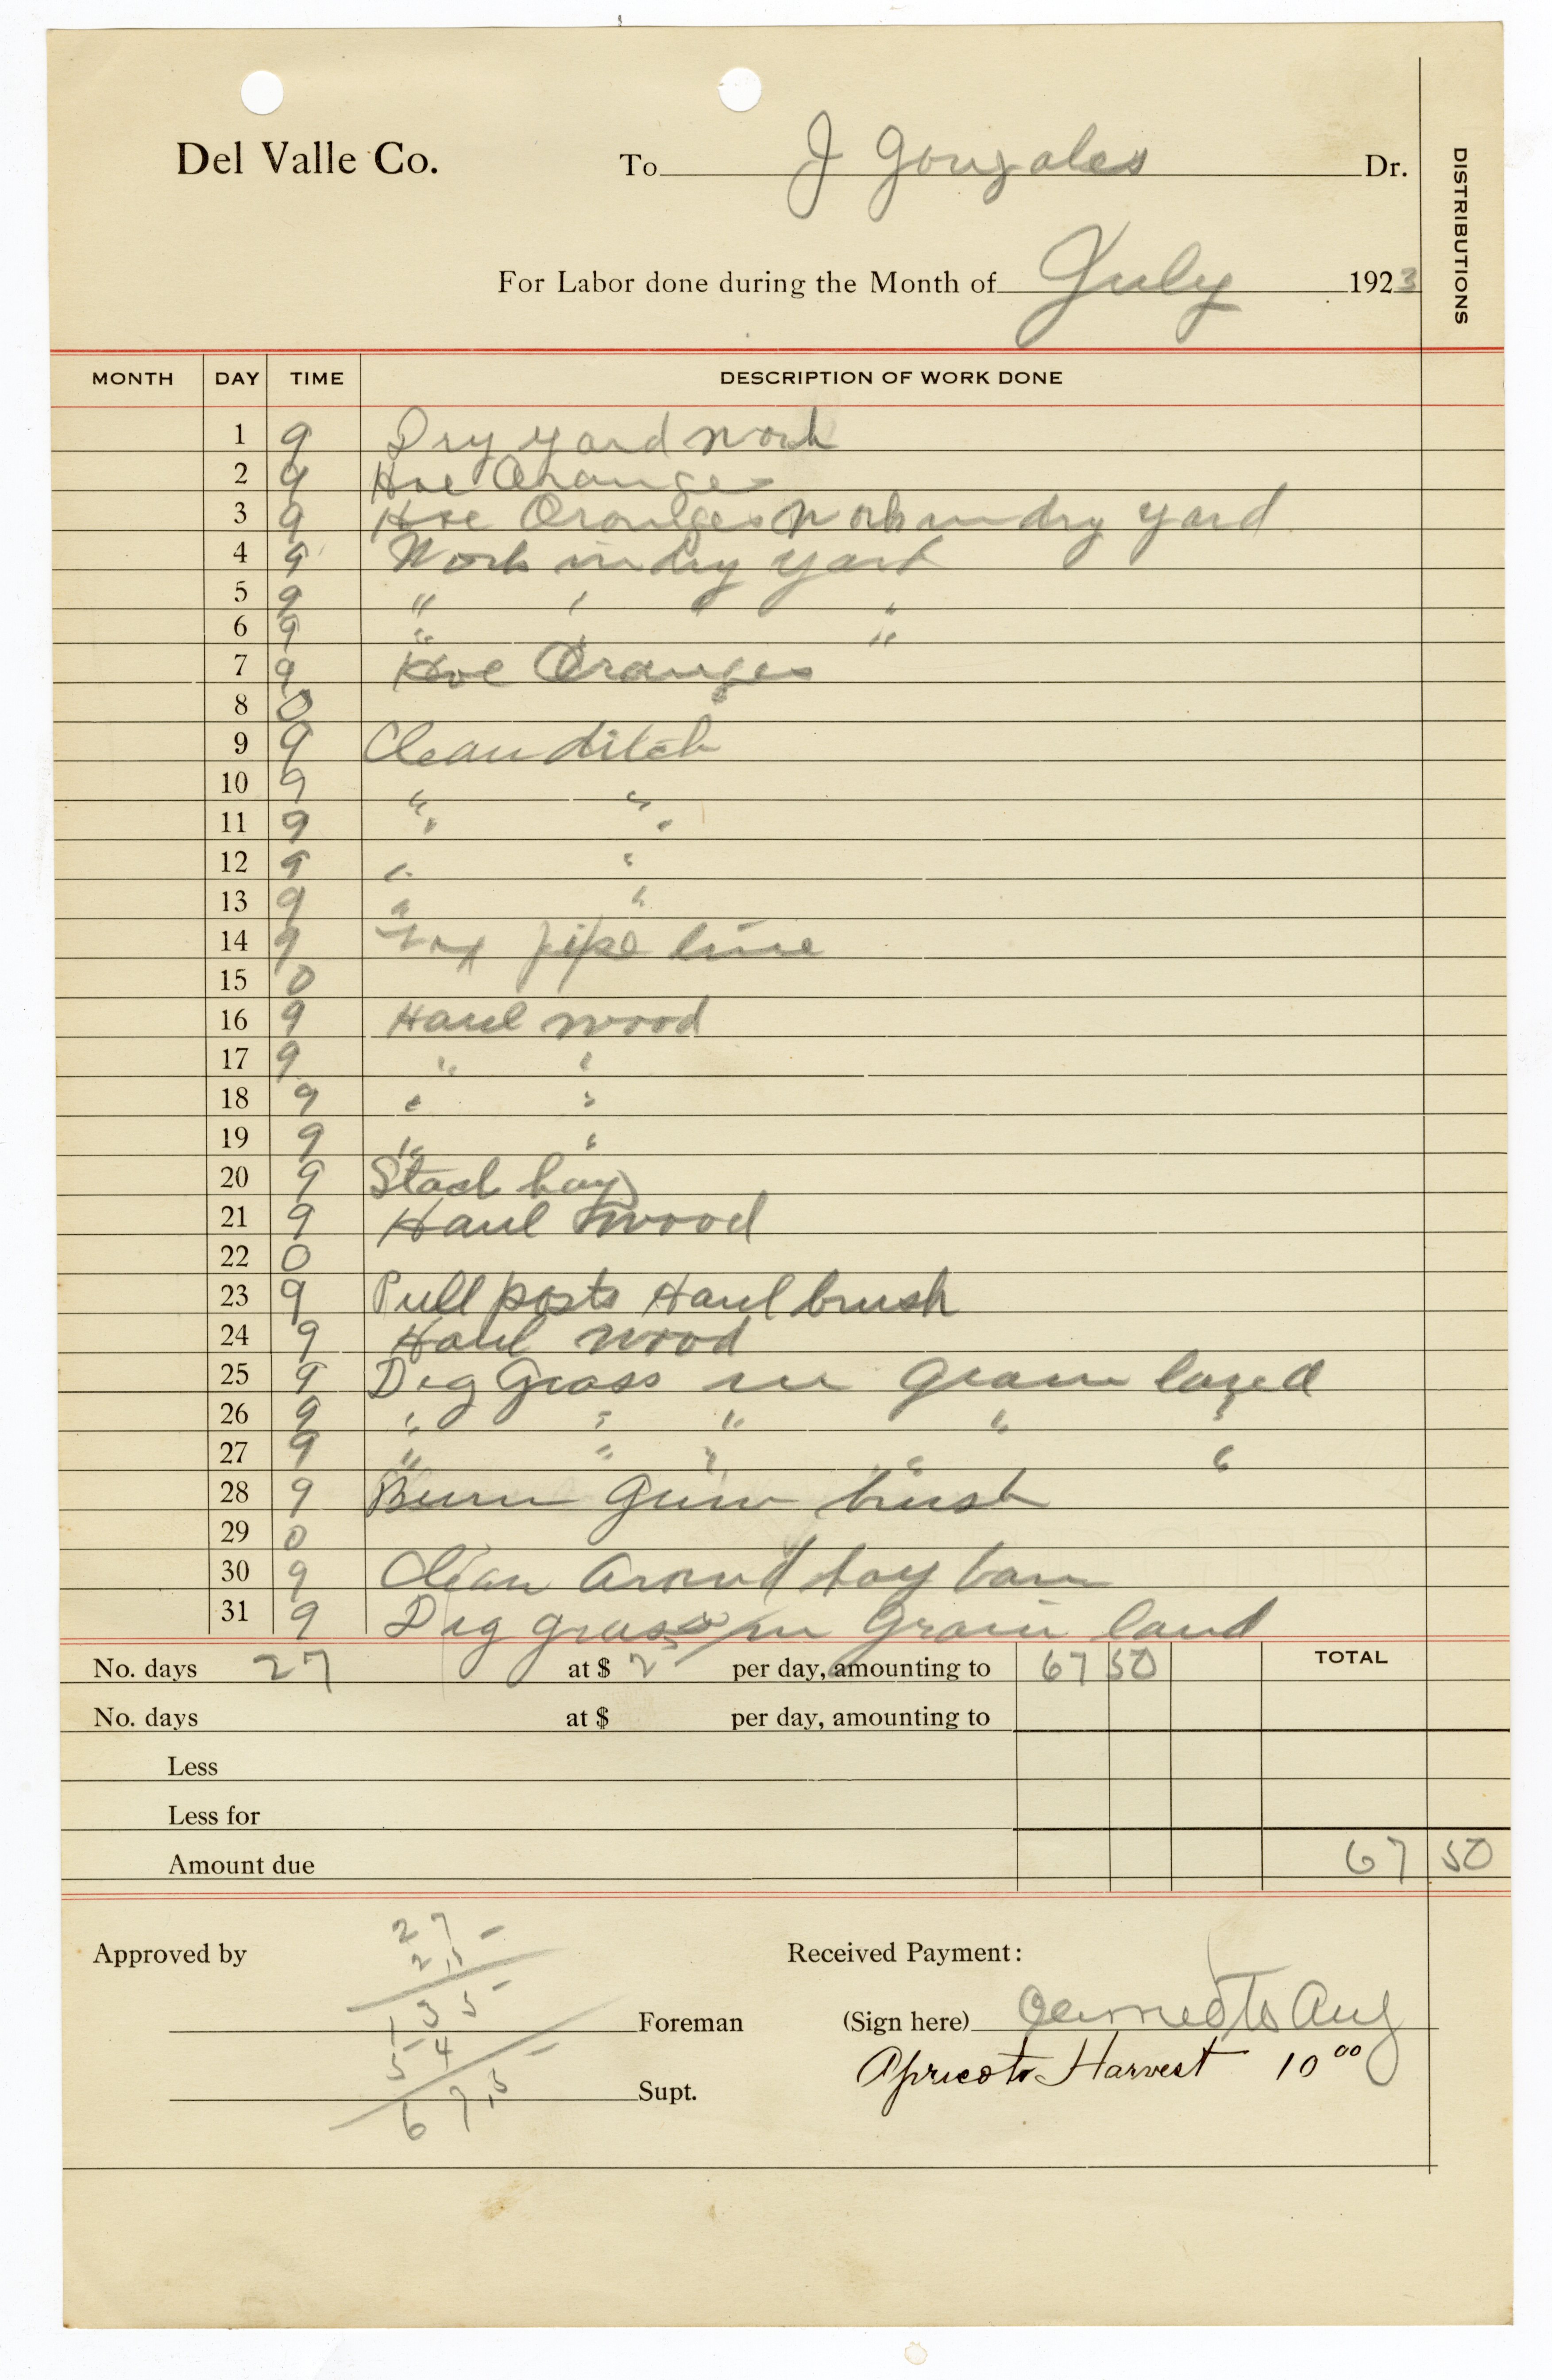 Del Valle Co. To J Gonzales Dr.
DISTRIBUTIONS
For Labor done during the Month of July 1923
MONTH DAY TIME DESCRIPTION OF WORK DONE
1 9 Dry yard work
2 9 Hoe Oranges
3 9 Hoe Oranges Work in dry yard
4 9 Work in dry yard
5 9 " " "
6 9 " " "
7 9 Hoe Oranges
8 0
9 9 Clean ditch
10 9 " "
11 9 " "
12 9 " "
13 9 " "
14 9 pipe line
15 0
16 9 Haul wood
17 9 " "
18 9 " "
19 9 " "
20 9 Stack hay
21 9 Haul wood
22 0
23 9 Pull posts Haul brush
24 9 Haul wood
25 9 Dig Grass in Grain land
26 9 " " " " "
27 9 " " " " "
28 9 Burn Gum brush
29 0
30 9 Clean Around hay barn
31 9 Dig grass in Grain land
No. days 27 at $ 2 50 per day, amounting to 67 50 TOTAL
No. days at $ per day, amounting to
Less
Less for
Amount due 67 50
27
Approved by 2.5 Received Payment:
135 Foreman (Sign here) Carried to Aug
54 Apricots Harvest 10 00
67.5 Supt.